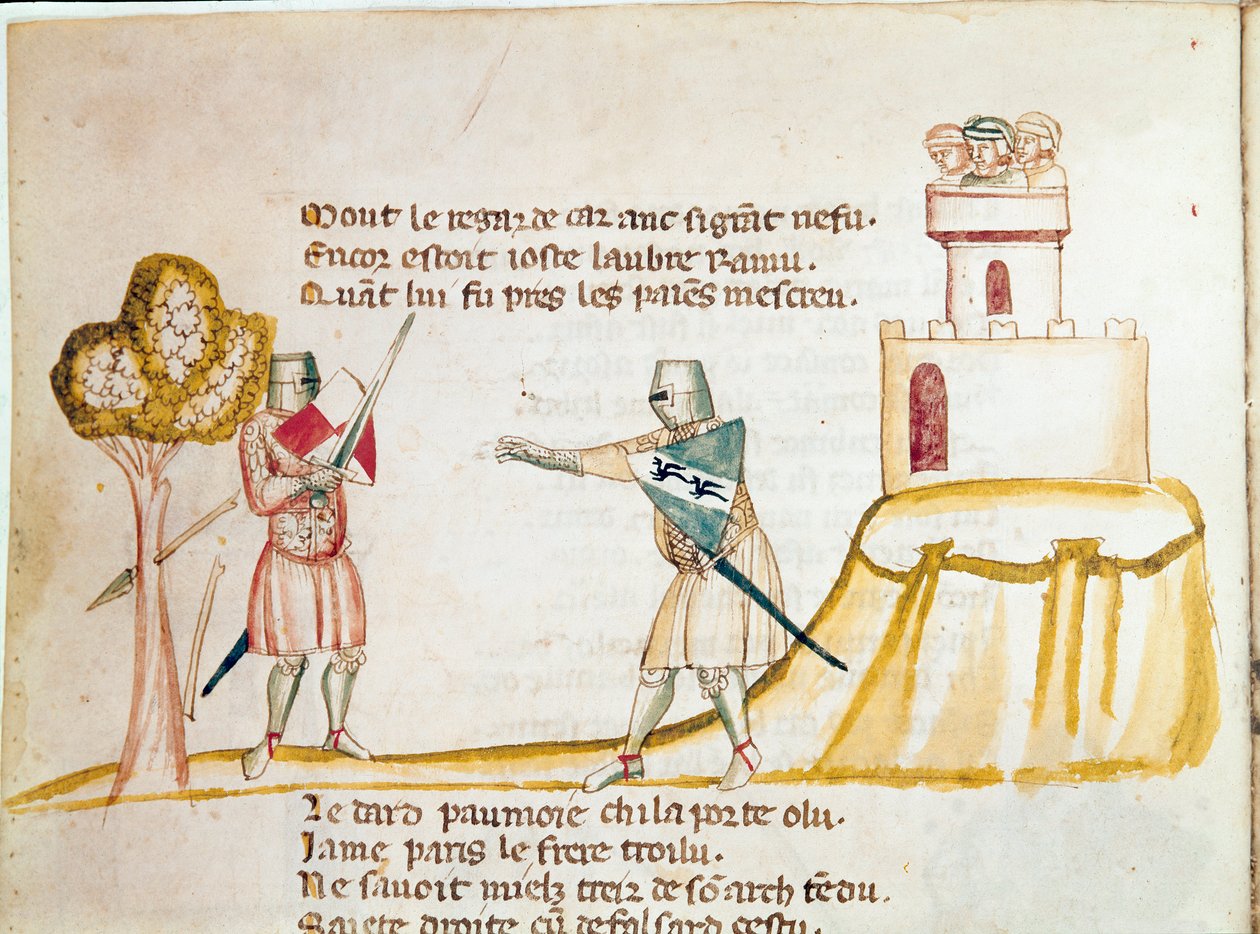 Mout le regarde car anc si grāt ne fu.
Encor estoit ioste laubre Ramu.
Quāt lui fu pres les paiēs mescreu.
Le dard paumoie chi la porte olu.
Jame paris le frere troilu.
Ne savoit mielz treir de sō arch tēdu.
Saiete droite cū de falsard cestu.